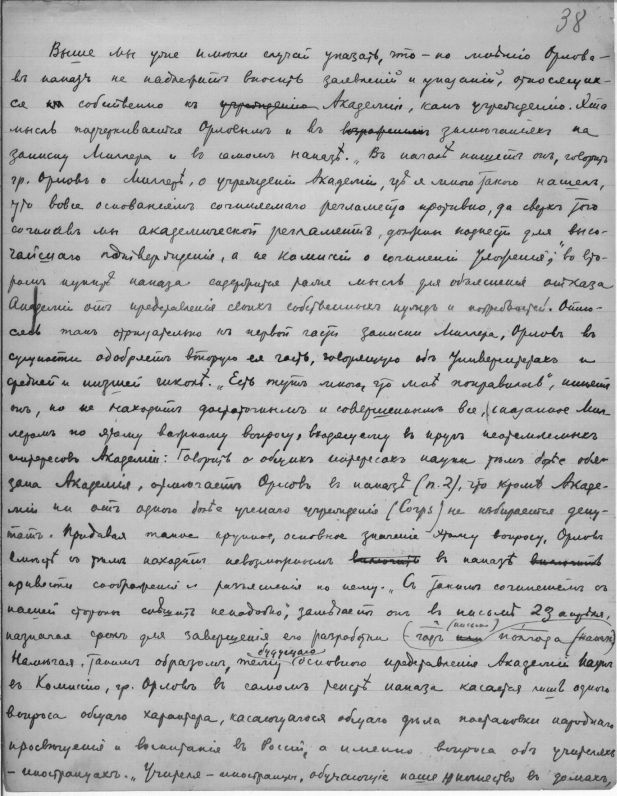 38
Выше мы уже имели случай указать, что – по мнѣнію Орлова –
въ наказъ не надлежитъ вносить заявленій и указаній, относящих-
ся собственно къ учрежденію Академіи, какъ учрежденію. Эта
мысль подчеркивается Орловымъ и въ возраженіи заключеніяхъ на
записку Миллера и въ самомъ наказѣ. „Въ началѣ пишетъ онъ, говоритъ
гр. Орловъ о Миллерѣ, о учрежденіи Академіи, гдѣ я много такого нашелъ,
что вовсе основаніямъ сочиняемаго регламента противно, да сверхъ того
сочинивъ мы академической регламентъ, должны поднести для высо-
чайшаго подтвержденія, а не Комисіи о сочиненіи Уложенія"; во вто-
ромъ пунктѣ наказа содержится та же мысль для объясненія отказа
Академіи отъ представленія своихъ собственныхъ нуждъ и потребностей. Отно-
сясь такъ отрицательно къ первой части записки Миллера, Орловъ въ
сущности одобряетъ вторую ея часть, говорящую объ Университетахъ и
средней и низшей школѣ. „Есть тутъ много, что мнѣ понравилось", пишетъ
онъ, но не находитъ достаточнымъ и совершеннымъ все, сказанное Мил-
леромъ по этому важному вопросу, входящему въ кругъ неотъемлемыхъ
интересовъ Академіи: Говорить о общихъ интересахъ науки тѣмъ болѣе обя-
зана Академія, отмѣчаетъ Орловъ въ наказѣ (п. 2), что кромѣ Академ-
іи ни отъ одного болѣе ученаго учрежденія (Corps) не выбирается депу-
татъ. Придавая такое крупное, основное значеніе этому вопросу, Орловъ
вмѣстѣ съ тѣмъ находитъ невозможнымъ включить въ наказѣ
привести соображенія и разъясненія по нему. „Съ такимъ сочиненіемъ съ
нашей стороны спѣшить ненадобно", замѣчаетъ онъ въ письмѣ 23 апрѣля,
назначая срокъ для завершенія его разработки (годъ или полгода
Намѣчая, такимъ образомъ, тему будущаго основного представленія Академіи Наукъ
въ Комисію, гр. Орловъ въ самомъ текстѣ наказа касается лишь одного
вопроса общаго характера, касающагося общаго дѣла постановки народнаго
просвѣщенія и воспитанія въ Россіи, а именно вопроса объ учителяхъ
– иностранцахъ. „Учителя – иностранцы, обучающіе наше юношество въ домахъ,